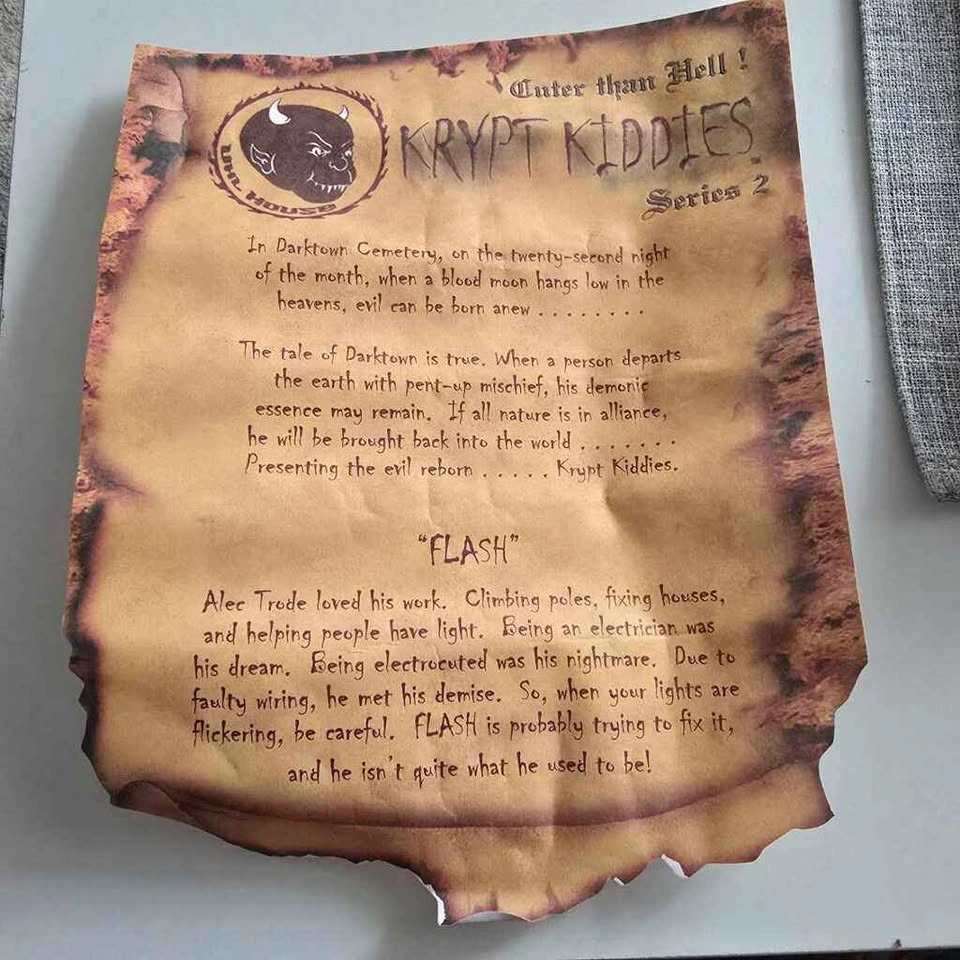 Cuter than Hell !
UHL HOUSE
KRYPT KIDDIES
Series 2
In Darktown Cemetery, on the twenty-second night
of the month, when a blood moon hangs low in the
heavens, evil can be born anew . . . . . . . .
The tale of Darktown is true. When a person departs
the earth with pent-up mischief, his demonic
essence may remain. If all nature is in alliance,
he will be brought back into the world . . . . . . .
Presenting the evil reborn . . . . . Krypt Kiddies.
"FLASH"
Alec Trode loved his work. Climbing poles, fixing houses,
and helping people have light. Being an electrician was
his dream. Being electrocuted was his nightmare. Due to
faulty wiring, he met his demise. So, when your lights are
flickering, be careful. FLASH is probably trying to fix it,
and he isn't quite what he used to be!